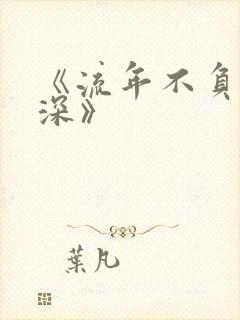 《流年不負
深》
葉凡